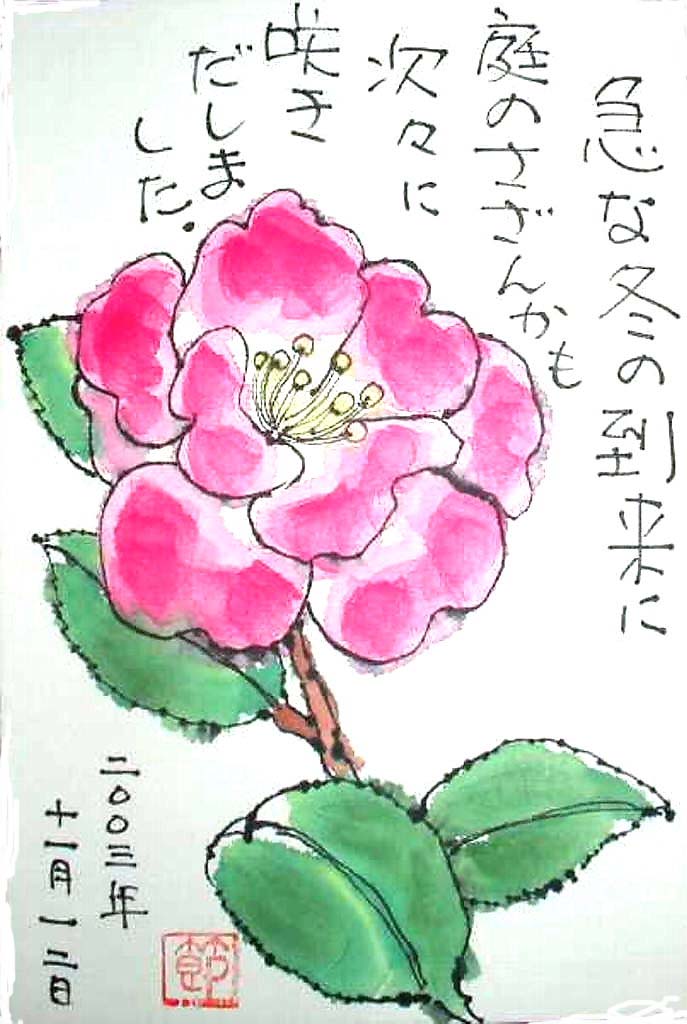 急な冬の到来に
庭のさざんかも
次々に
咲き
だしま
した.
二〇〇三年
十一月十二日
節